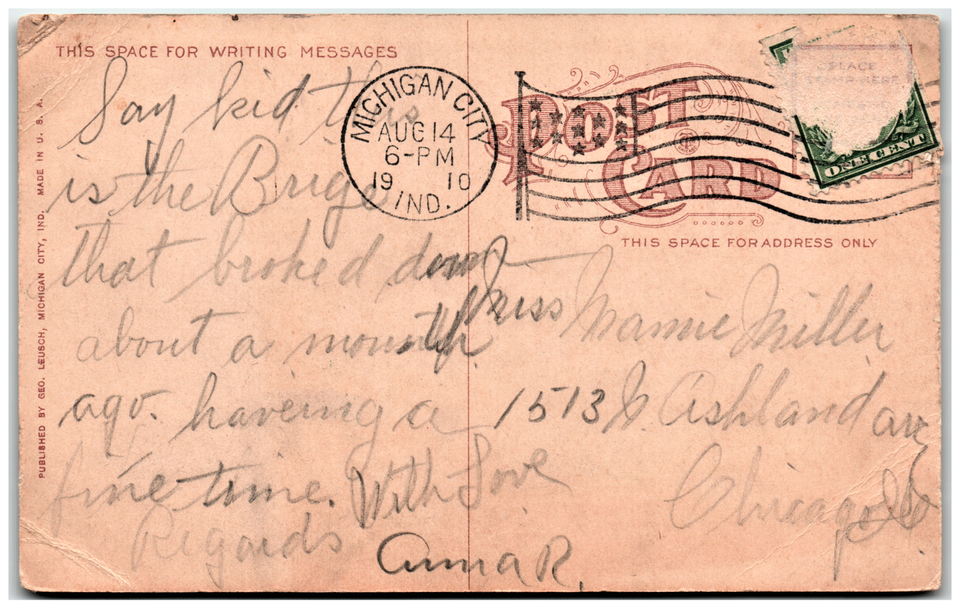 THIS SPACE FOR WRITING MESSAGES
Say kid this
is the Brige
that broked down
about a mounth
ago. haveing a
fine time. With Love
Regards
Anna R.
MICHIGAN CITY
AUG 14
6-PM
1910
IND.
POST
CARD
PLACE
STAMP HERE
ONE CENT
THIS SPACE FOR ADDRESS ONLY
Miss Mamie Miller
1513 N. Ashland ave
Chicago Ill
PUBLISHED BY GEO. LEUSCH, MICHIGAN CITY, IND. MADE IN U. S. A.